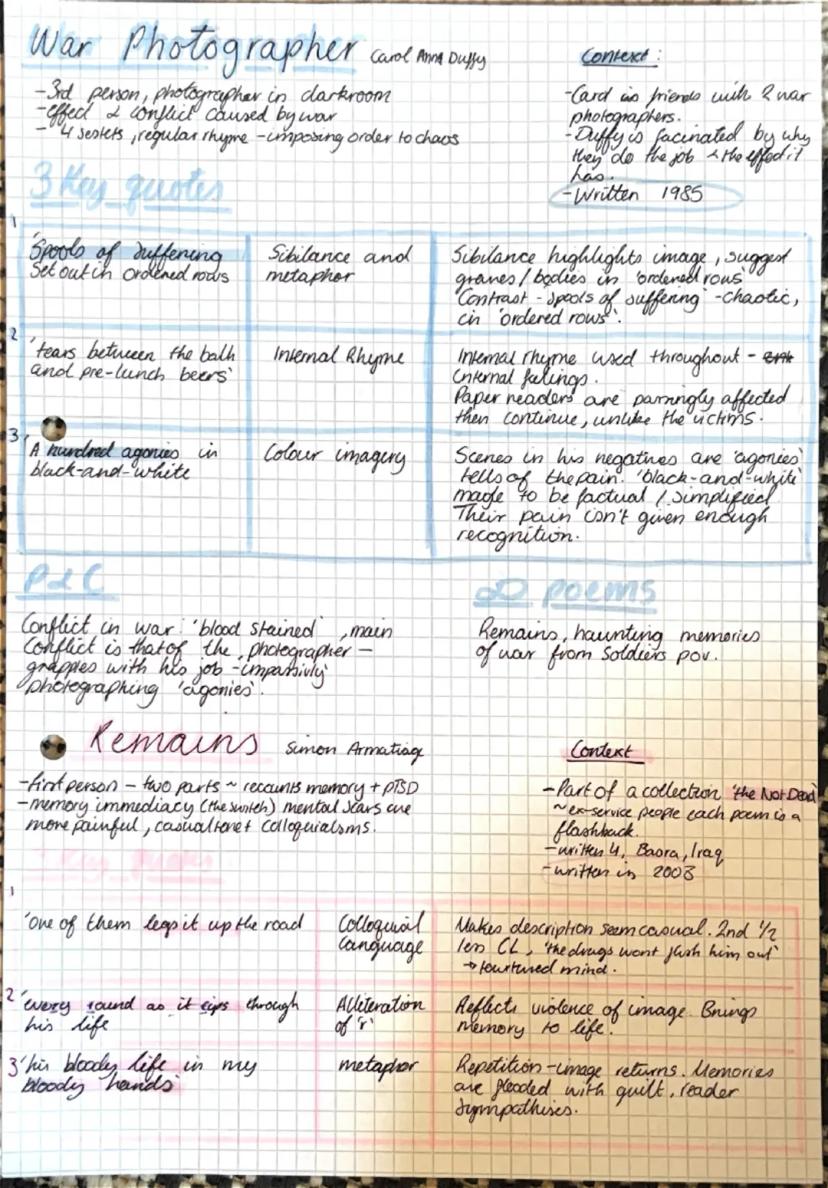 War Photographer Carol Anna Duffy
-3rd person, photographer in darkroom
-effect & conflict caused by war
- 4 sestets, regular rhyme - imposing order to chaos
Context:
-Carol is friends with 2 war
photographers.
-Duffy is facinated by why
they do the job & the effect it
has.
-Written 1985
3 Key quotes
1
'Spools of suffering
Set out in ordered rows
Sibilance and
metaphor
Sibilance highlights image, suggest
graves/bodies in 'ordered rows'
Contrast - spools of suffering' - chaotic,
in 'ordered rows'.
2
'tears between the bath
and pre-lunch beers'
Internal Rhyme
Internal rhyme used throughout -
internal feelings.
Paper readers are parringly affected
then continue, unlike the victims.
3
'A hundred agonies in
black-and-white
Colour imagery
Scenes in his negatives are 'agonies'
tells of the pain. 'black-and-white'
made to be factual / simplified
Their pain isn't given enough
recognition.
P&C
Conflict in war: 'blood stained', main
Conflict is that of the, photographer -
grapples with his job - impassivly
photographing 'agonies'.
poems
Remains, haunting memories
of war from Soldiers pov.
Remains Simon Armatiage
-first person - two parts ~ recounts memory + PTSD
-memory immediacy (the switch) mental scars are
more painful, casual tone + colloquialisms.
Context
-Part of a collection 'the Not Dead'
~ ex-service people each poem is a
flashback.
-written 4, Basra, Iraq
-written in 2008
Key quotes
1
'one of them legs it up the road
Colloquial
Language
Makes description seem casual. 2nd 1/2
less CL, 'the drugs wont flush him out'
→ tourtured mind.
2
'every round as it rips through
his life
Alliteration
of 'r'
Reflects violence of image. Brings
memory to life.
3
'his bloody life in my
bloody hands'
metaphor
Repetition - image returns. Memories
are flooded with guilt, reader
sympathises.